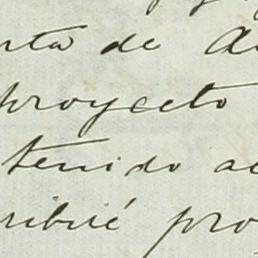 rta de A
proyecto
tenido a
ribué pro